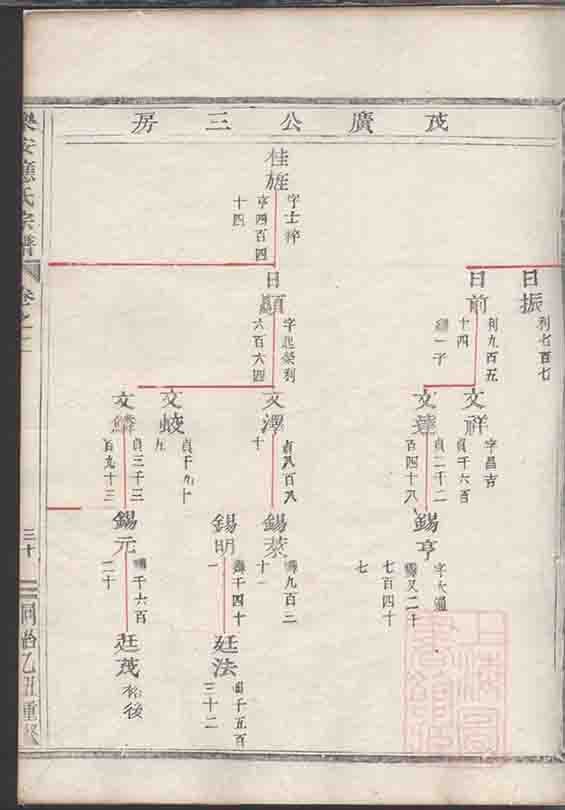 茂廣公三房
日振
利七百七
日前
利九百五
十四
繼一子
文祥
字昌吉
貞千六百
文達
貞二千二
百四十八
錫亨
字大通
七百四十
七
桂旌
字士粹
亨四百四
十四
日顯
字起榮利
六百六四
文澤
貞八百八
十
錫棻
九百三
十一
錫明
千四十
一
廷法
千五百
三十二
文蛟
貞千九十
九
文鱗
貞三千三
百九十三
錫元
千六百
二十
廷茂
後
樂安應氏宗譜
卷之
三十
同治乙丑重修
上海圖書館藏